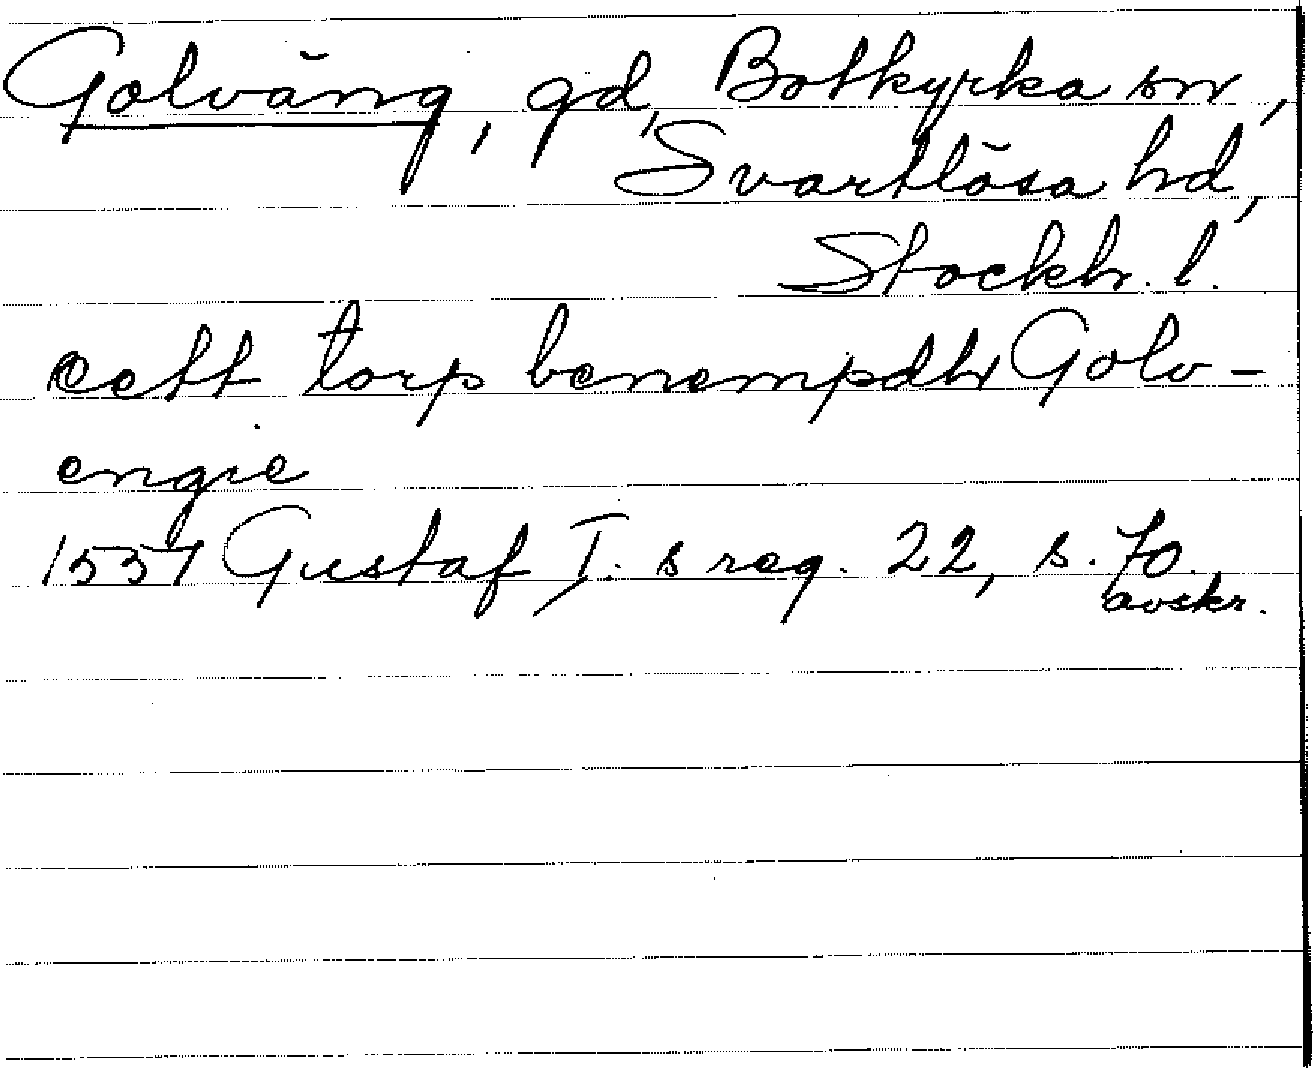 Golväng, gd, Botkyrka sn,
Svartlösa hd,
Stockh. l.
eett torp benempdh Golv-
engie
1557 Gustaf I.s reg. 22, s. 70.
avskr.